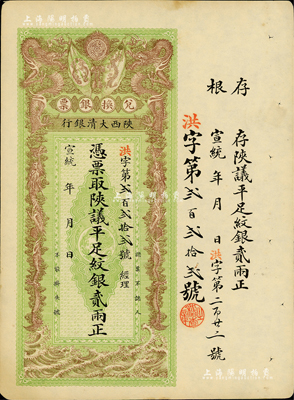 上海陽明拍賣
存根
存陝議平足紋銀貳兩正
宣統 年 月 日 洪字第二百廿二號
洪字第貳百貳拾貳號
兌換銀票
陝西大清銀行
洪字第貳百貳拾貳號 經理
憑票取陝議平足紋銀貳兩正
宣統 年 月 日
上海陽明拍賣